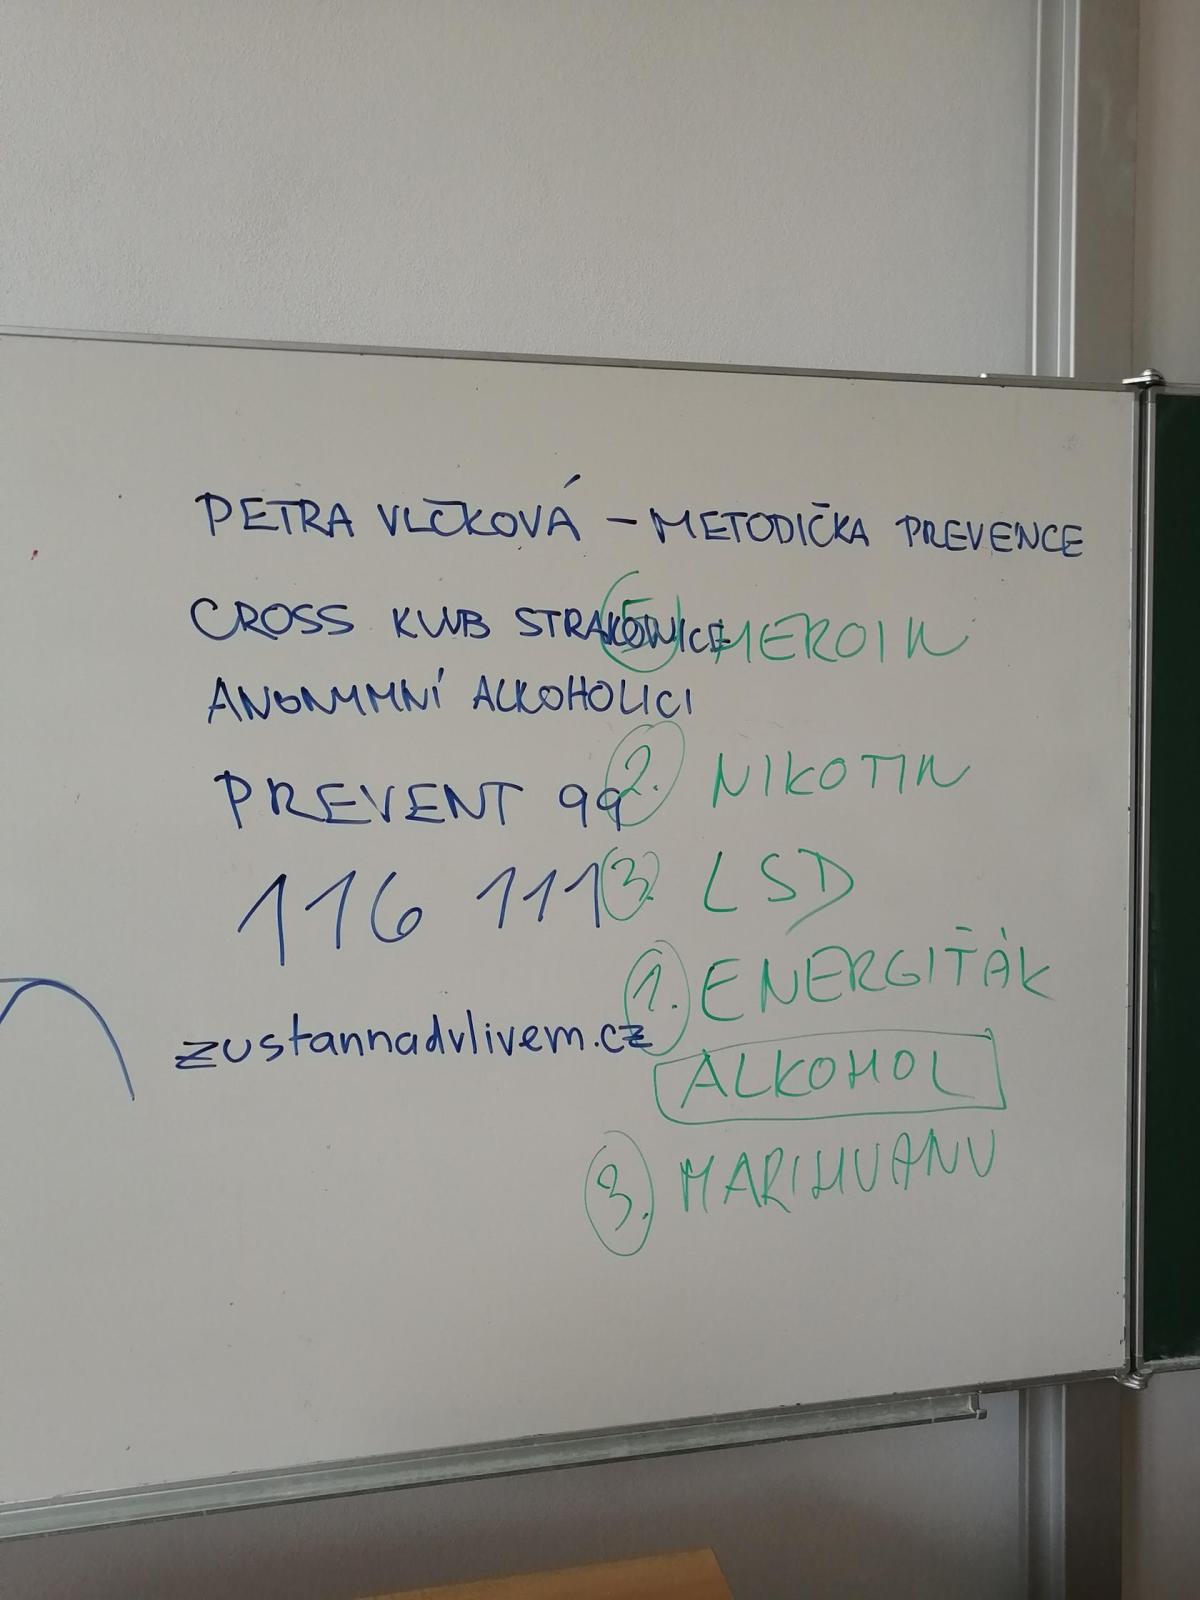 PETRA VLČKOVÁ – METODIČKA PREVENCE
CROSS KLUB STRAKONICE
ANONYMNÍ ALKOHOLICI
PREVENT 99
116 111
zustannadvlivem.cz
5. HEROIN
2. NIKOTIN
3. LSD
1. ENERGIŤÁK
ALKOHOL
3. MARIHUANU